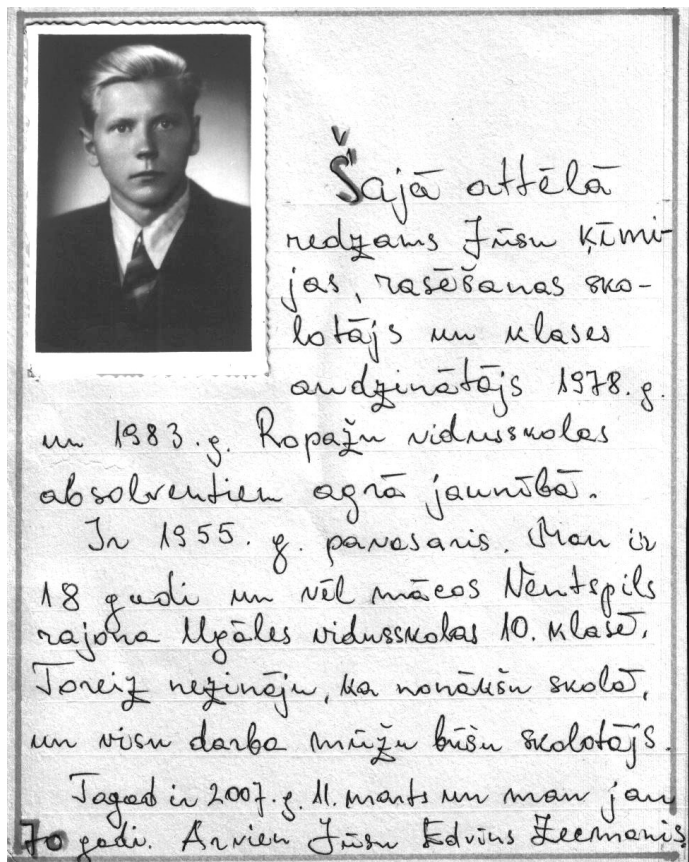 Šajā attēlā
redzams Jūsu ķīmi-
jas, rasēšanas sko-
lotājs un klases
audzinātājs 1978.g.
un 1983.g. Ropažu vidusskolas
absolventiem agrā jaunībā.
Ir 1955.g. pavasaris. Man ir
18 gadi un vēl mācos Ventspils
rajona Ugāles vidusskolas 10. klasē.
Toreiz nezināju, ka nonākšu skolā,
un visu darba mūžu būšu skolotājs.
Tagad ir 2007.g. 11. marts un man jau
70 gadi. Arvien Jūsu Edvīns